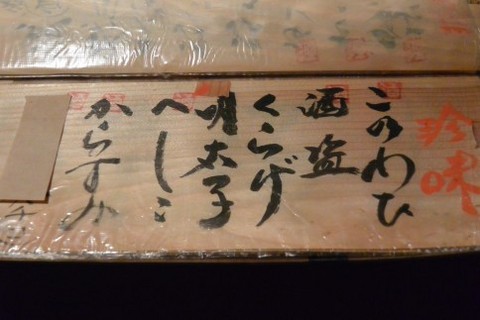 珍味
このわた
酒盗
くらげ
明太子
へしこ
からすみ